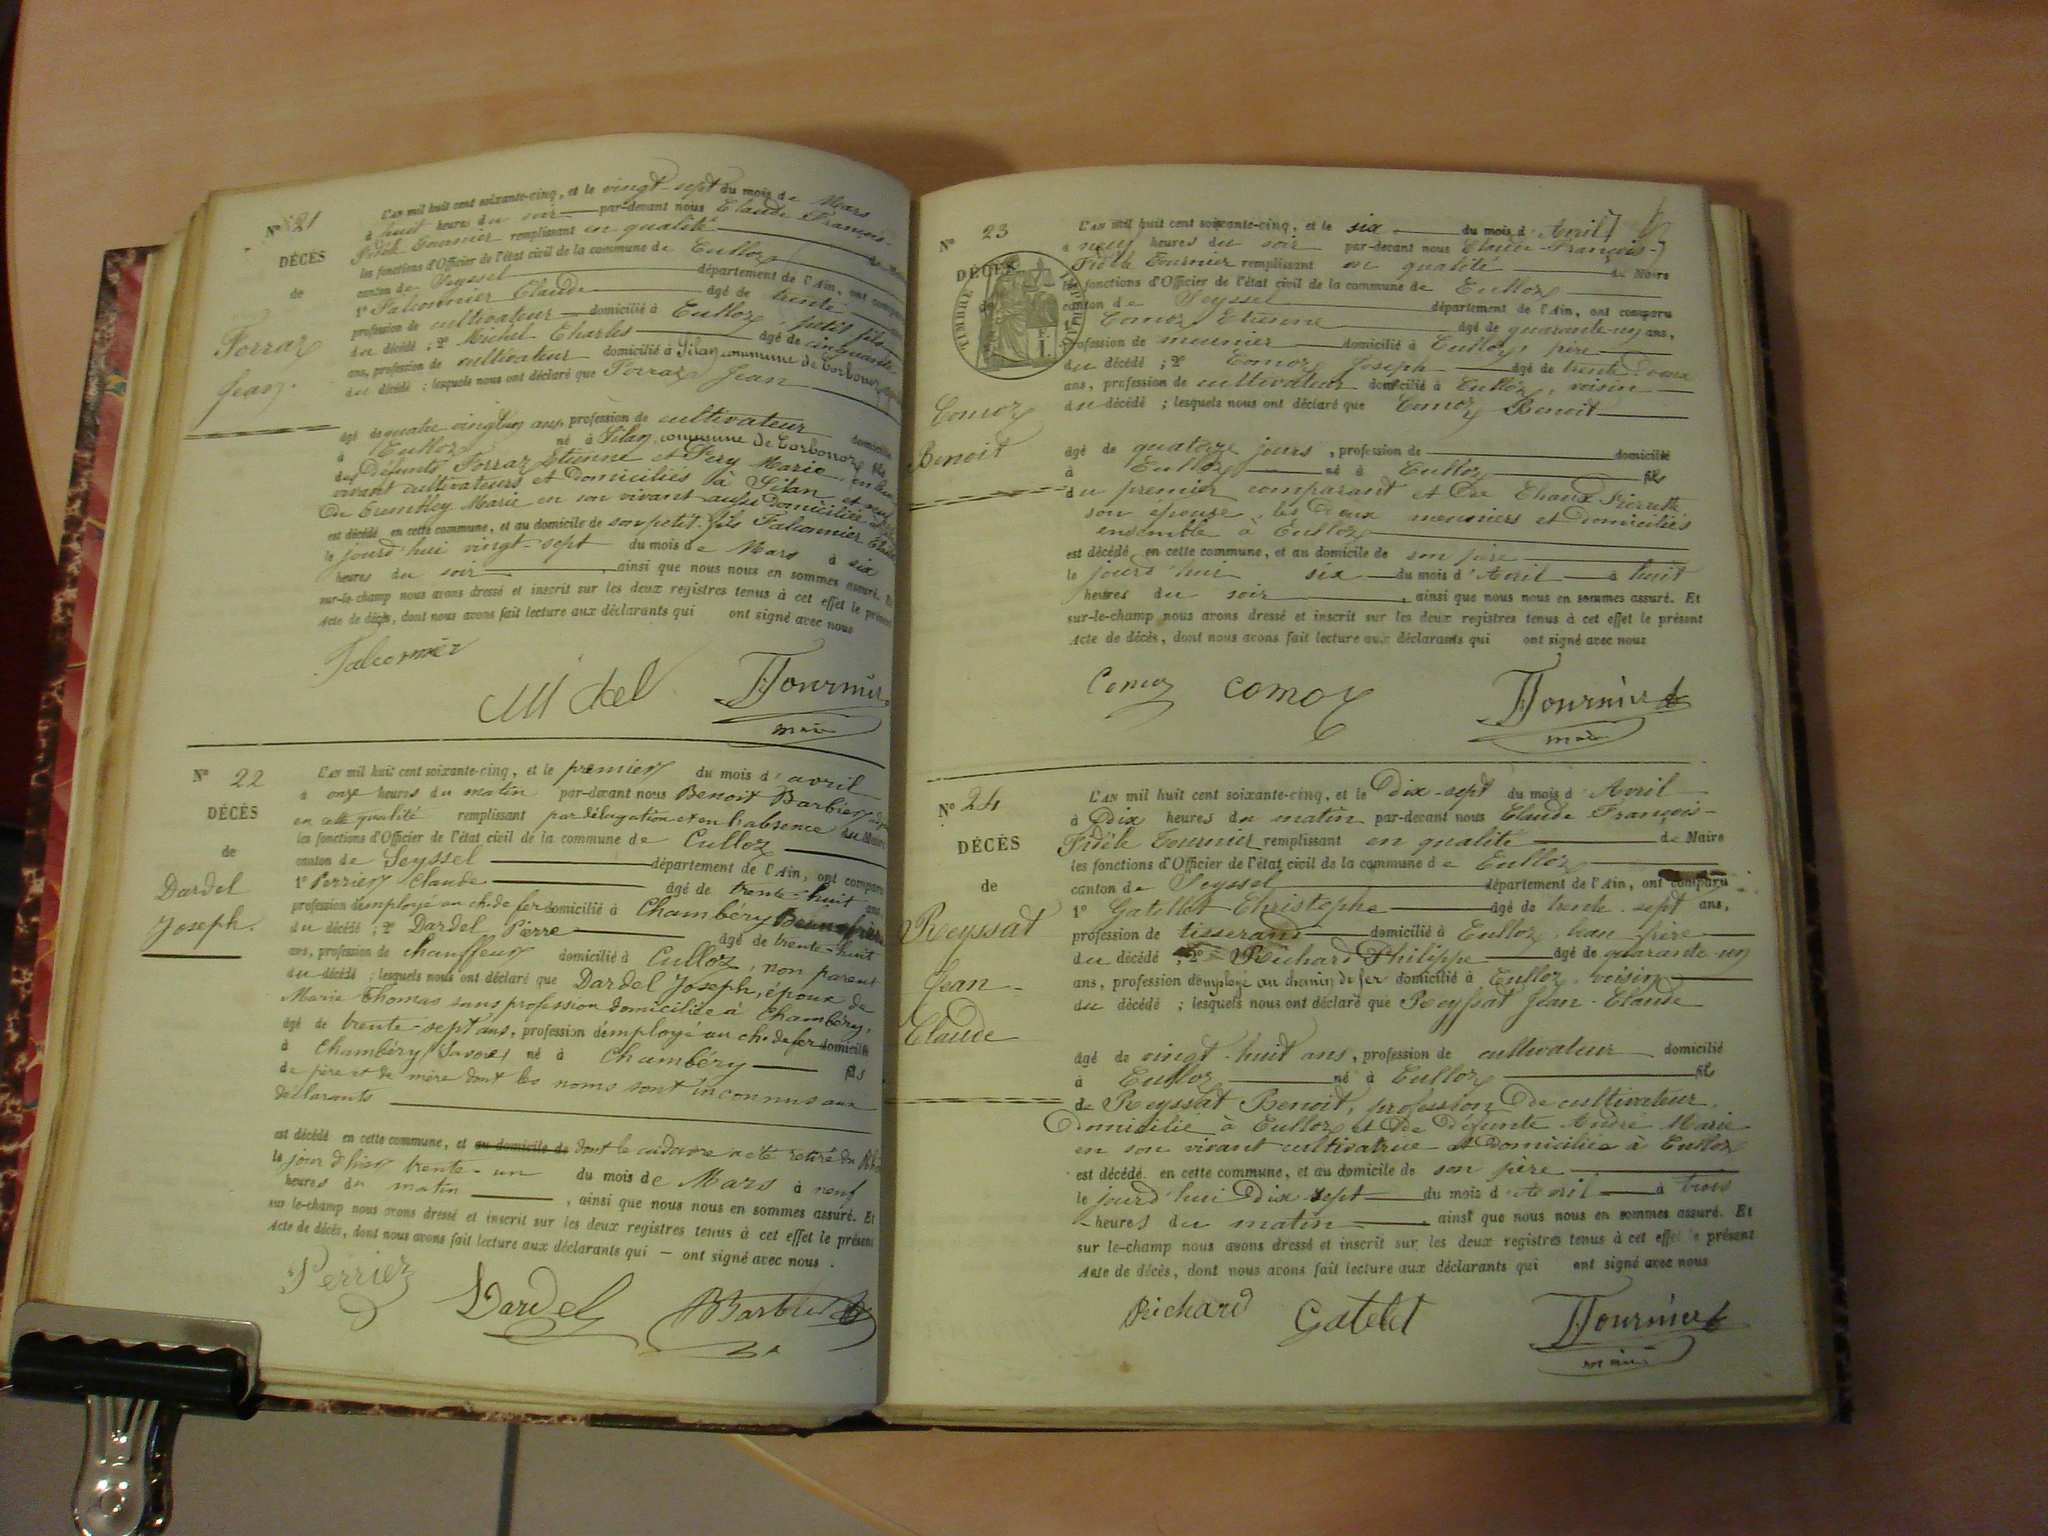 N° 21
DÉCÈS
de
Forraz
Jean.
L'AN mil huit cent soixante-cinq, et le vingt-sept du mois de Mars
à huit heure du soir par-devant nous Claude François-
Fidèle Fournier remplissant en qualité de Maire
les fonctions d'Officier de l'état civil de la commune de Culloz
canton de Seyssel département de l'Ain, ont comparu
1° Falconnier Claude âgé de trente
profession de cultivateur domicilié à Culloz, petit fils
du décédé ; 2° Michel Charles âgé de cinquante
ans, profession de cultivateur domicilié à Silan commune de Corbonoz
du décédé ; lesquels nous ont déclaré que Forraz Jean
âgé de quatre vingt un ans, profession de cultivateur domicilié
à Culloz né à Silan commune de Corbonoz fils
des Défunts Forraz Etienne et Pery Marie en leur
vivant cultivateurs et Domiciliés à Silan et veuf
de Marie en son vivant aussi Domiciliée
est décédé en cette commune, et au domicile de son petit-fils Falconnier Claude
le jourd'hui vingt-sept du mois de Mars à six
heures du soir , ainsi que nous nous en sommes assuré. Et
sur-le-champ nous avons dressé et inscrit sur les deux registres tenus à cet effet le présent
Acte de décès, dont nous avons fait lecture aux déclarants qui ont signé avec nous
Falconnier
Michel FFournier
maire
N° 22
DÉCÈS
de
Dardel
Joseph.
L'AN mil huit cent soixante-cinq, et le premier du mois d'avril
à onze heures du matin par-devant nous Benoit Barbier
en cette qualité remplissant par délégation et en l'absence du Maire
les fonctions d'Officier de l'état civil de la commune de Culloz
canton de Seyssel département de l'Ain, ont comparu
1° Perrier Claude âgé de trente-huit ans,
profession d'employé au ch. de fer domicilié à Chambéry Beau frère
du décédé ; 2° Dardel Pierre âgé de trente-huit
ans, profession de chauffeur domicilié à Culloz, non parent
du décédé ; lesquels nous ont déclaré que Dardel Joseph, époux de
Marie Thomas sans profession domiciliée à Chambéry,
âgé de trente-sept ans, profession d'employé au ch. de fer domicilié
à Chambéry Savoie né à Chambéry fils
de père et de mère dont les noms sont inconnus aux
déclarants
est décédé en cette commune, et au domicile de dont le cadavre a été retiré du Rhône
le jour d'hier trente-un du mois de Mars à neuf
heures du matin , ainsi que nous nous en sommes assuré. Et
sur le-champ nous avons dressé et inscrit sur les deux registres tenus à cet effet le présent
Acte de décès, dont nous avons fait lecture aux déclarants qui — ont signé avec nous .
Perrier Dardel BBarbier
N° 23
DÉCÈS
de
TIMBRE IMPERIAL
1 F.
Comoz
Benoit
L'AN mil huit cent soixante-cinq, et le six du mois d'Avril
à neuf heures du soir par-devant nous Claude-François-
Fidèle Fournier remplissant en qualité de Maire
les fonctions d'Officier de l'état civil de la commune de Culloz
canton de Seyssel département de l'Ain, ont comparu
1° Comoz Etienne âgé de quarante-un ans,
profession de meunier domicilié à Culloz, père
du décédé ; 2° Comoz Joseph âgé de trente deux
ans, profession de cultivateur domicilié à Culloz, voisin
du décédé ; lesquels nous ont déclaré que Comoz Benoit
âgé de quatorze jours , profession de domicilié
à Culloz né à Culloz fils
du premier comparant et de Chaux Pierrette
son épouse, les deux meuniers et domiciliés
ensemble à Culloz
est décédé en cette commune, et au domicile de son père
le jourd'hui six du mois d'Avril à huit
heures du soir , ainsi que nous nous en sommes assuré. Et
sur-le-champ nous avons dressé et inscrit sur les deux registres tenus à cet effet le présent
Acte de décès, dont nous avons fait lecture aux déclarants qui ont signé avec nous
Comoz comoz FFournier
maire
N° 24
DÉCÈS
de
Reyssat
Jean-
Claude
L'AN mil huit cent soixante-cinq, et le Dix-sept du mois d'Avril
à Dix heures du matin par-devant nous Claude François-
Fidèle Fournier remplissant en qualité de Maire
les fonctions d'Officier de l'état civil de la commune de Culloz
canton de Seyssel département de l'Ain, ont comparu
1° Gatellet Christophe âgé de trente-sept ans,
profession de tisserand domicilié à Culloz, beau père
du décédé ; 2° Richard Philippe âgé de quarante-un
ans, profession d'employé au chemin de fer domicilié à Culloz, voisin
du décédé ; lesquels nous ont déclaré que Reyssat Jean-Claude
âgé de vingt-huit ans, profession de cultivateur domicilié
à Culloz né à Culloz fils
de Reyssat Benoit, profession de cultivateur,
Domicilié à Culloz et de Défunte André Marie
en son vivant cultivatrice et Domiciliée à Culloz
est décédé en cette commune, et au domicile de son père
le jourd'hui Dix-sept du mois d'Avril à trois
heures du matin , ainsi que nous nous en sommes assuré. Et
sur le-champ nous avons dressé et inscrit sur les deux registres tenus à cet effet le présent
Acte de décès, dont nous avons fait lecture aux déclarants qui ont signé avec nous
Richard Gatelet FFournier
maire